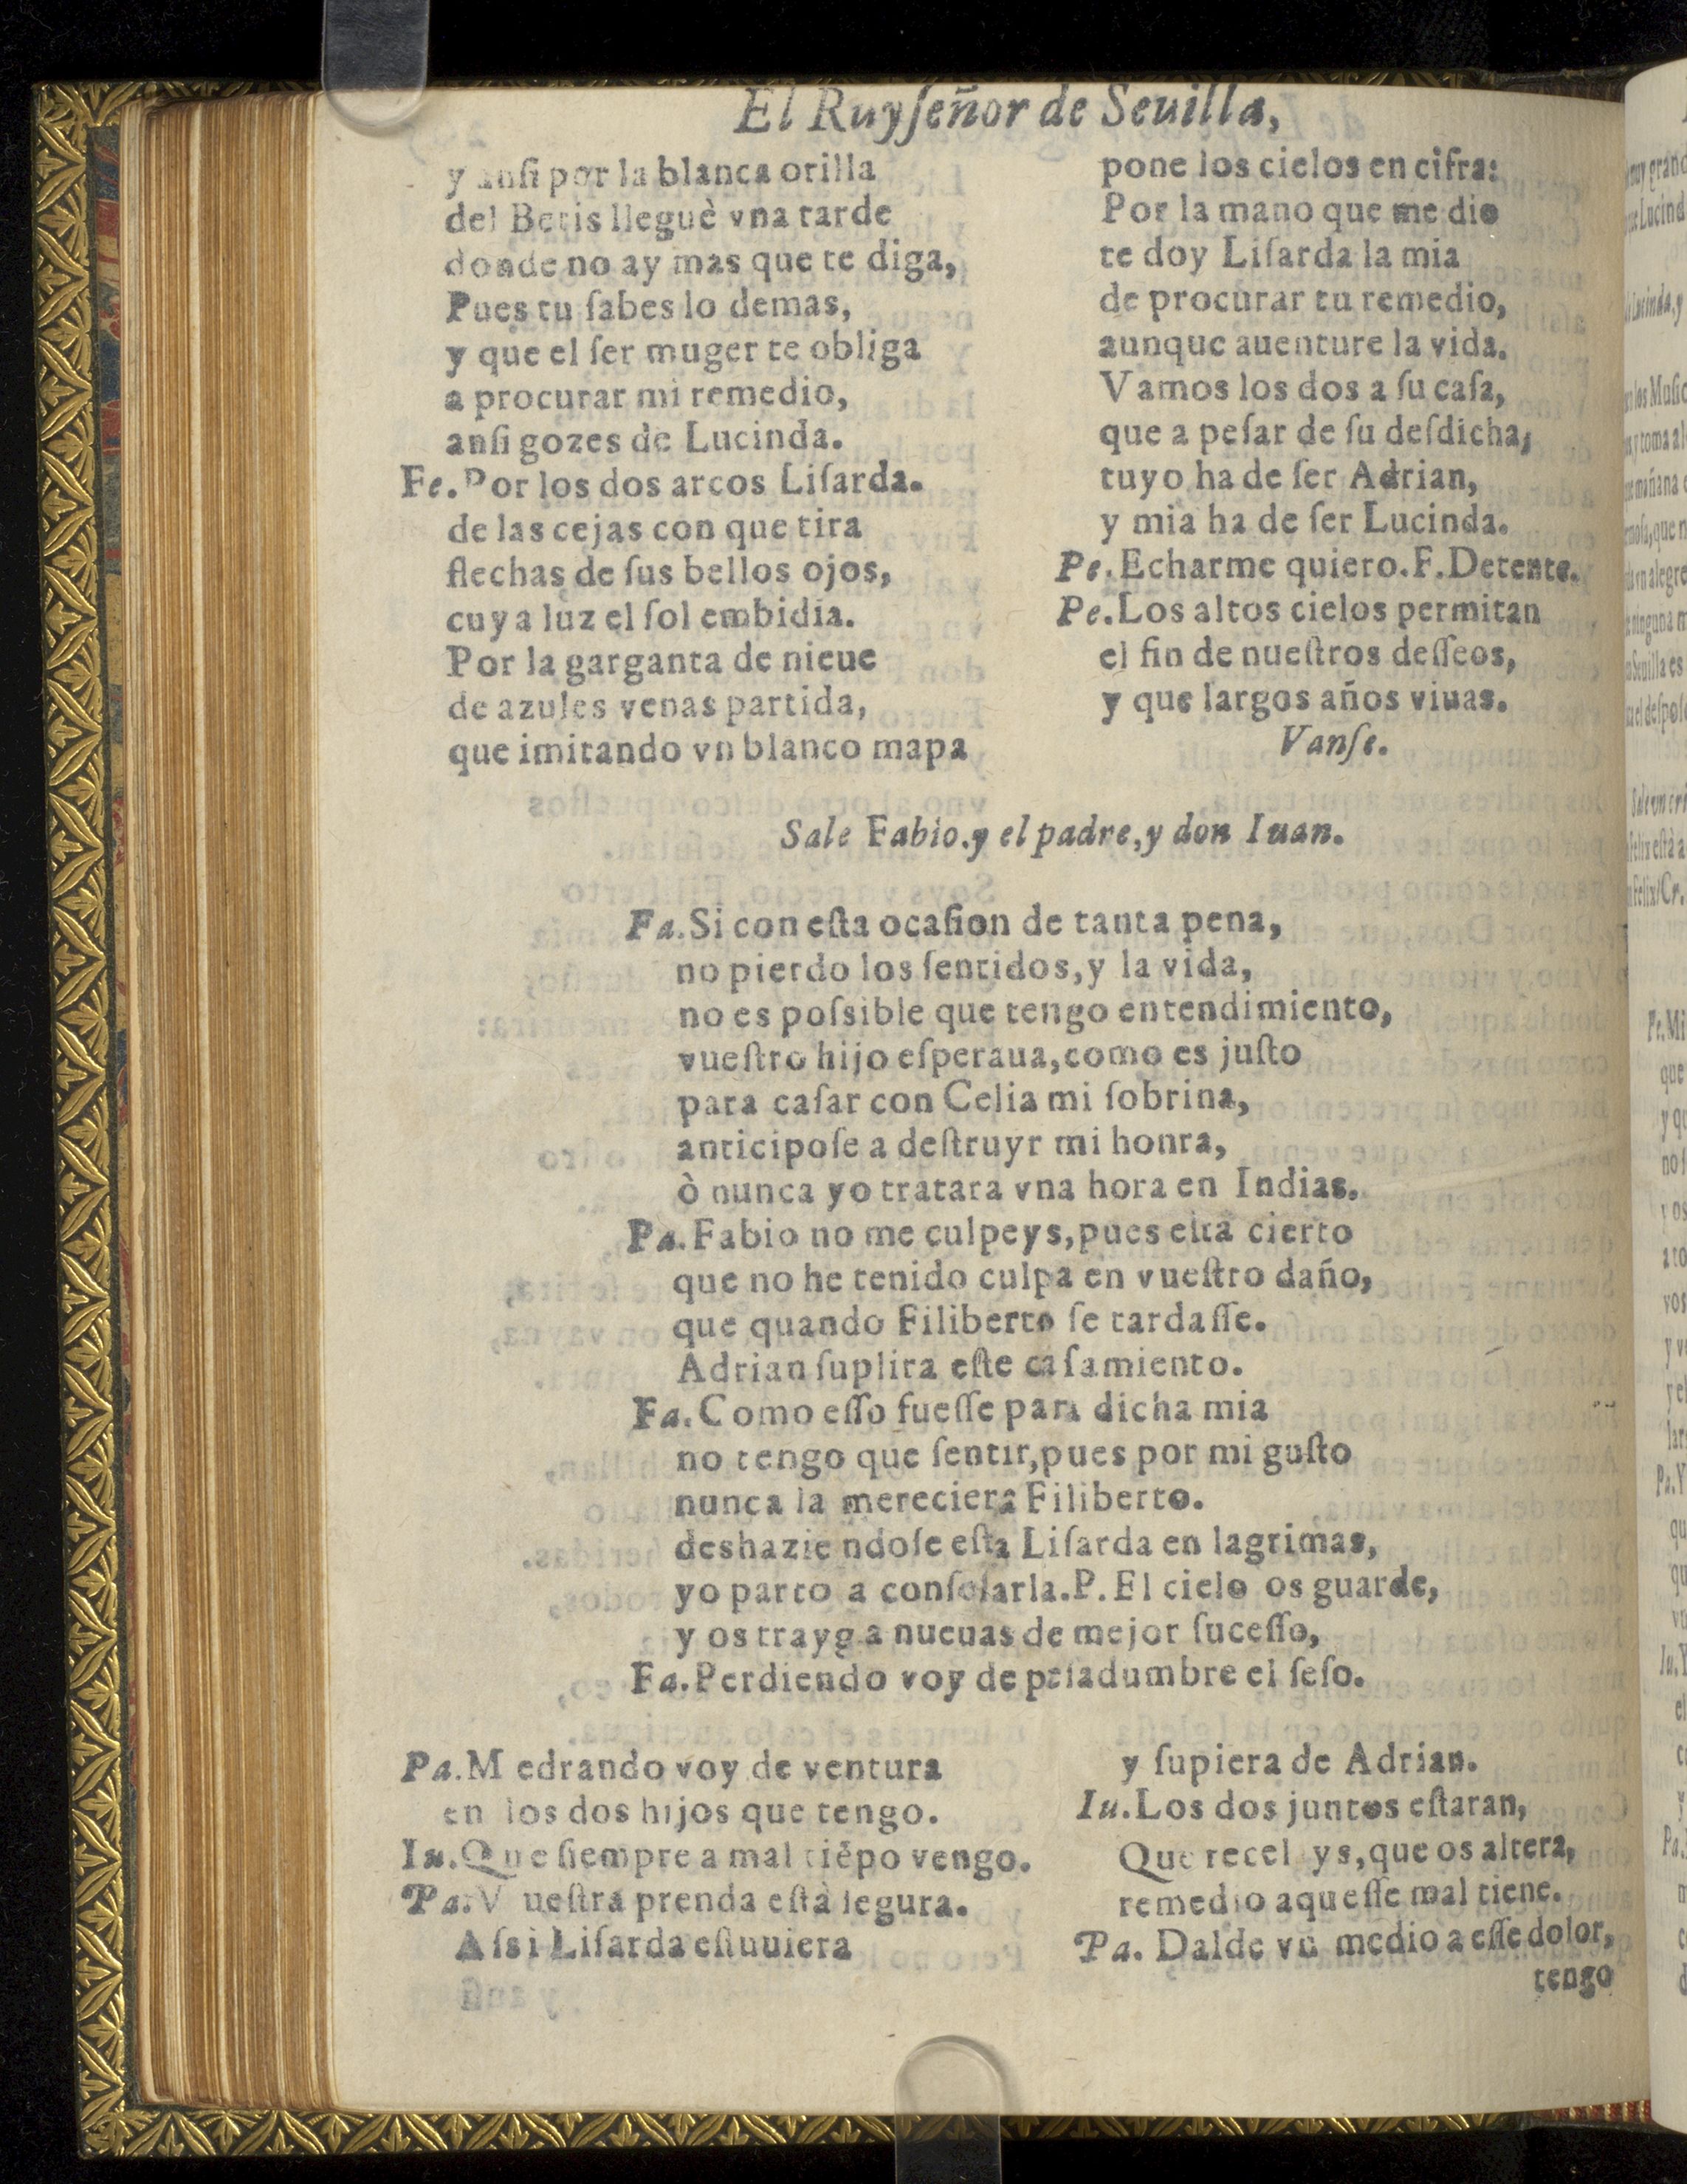 El Ruyſeñor de Seuilla,
y anſi por la blanca orilla
del Betis lleguè vna tarde
donde no ay mas que te diga,
Pues tu ſabes lo demas,
y que el ſer muger te obliga
a procurar mi remedio,
anſi gozes de Lucinda.
Fe. Por los dos arcos Liſarda.
de las cejas con que tira
flechas de ſus bellos ojos,
cuya luz el ſol embidia.
Por la garganta de nieue
de azules venas partida,
que imitando vn blanco mapa
pone los cielos en cifra:
Por la mano que me dio
te doy Liſarda la mia
de procurar tu remedio,
aunque auenture la vida.
Vamos los dos a ſu caſa,
que a peſar de ſu deſdicha,
tuyo ha de ſer Adrian,
y mia ha de ſer Lucinda.
Pe. Echarme quiero. F. Detente.
Pe. Los altos cielos permitan
el fin de nueſtros deſſeos,
y que largos años viuas.
Vanſe.
Sale Fabio.y el padre,y don Iuan.
Fa. Si con eſta ocaſion de tanta pena,
no pierdo los ſentidos,y la vida,
no es poſsible que tengo entendimiento,
vueſtro hijo eſperaua,como es juſto
para caſar con Celia mi ſobrina,
anticipoſe a deſtruyr mi honra,
ò nunca yo tratara vna hora en Indias.
Pa. Fabio no me culpeys,pues eſtà cierto
que no he tenido culpa en vueſtro daño,
que quando Filiberto ſe tardaſſe.
Adrian ſuplira eſte caſamiento.
Fa. Como eſſo fueſſe para dicha mia
no tengo que ſentir,pues por mi guſto
nunca la mereciera Filiberto.
deshaziendoſe eſta Liſarda en lagrimas,
yo parto a conſolarla. P. El cielo os guarde,
y os trayga nueuas de mejor ſuceſſo,
Fa. Perdiendo voy de peſadumbre el ſeſo.
Pa. Medrando voy de ventura
en los dos hijos que tengo.
Iu. Que ſiempre a mal tiẽpo vengo.
Pa. Vueſtra prenda eſtà ſegura.
Aſsi Liſarda eſtuuiera
y ſupiera de Adrian.
Iu. Los dos juntos eſtaran,
Que recel ys,que os altera,
remedio aqueſſe mal tiene.
Pa. Dalde vn medio a eſſe dolor,
tengo